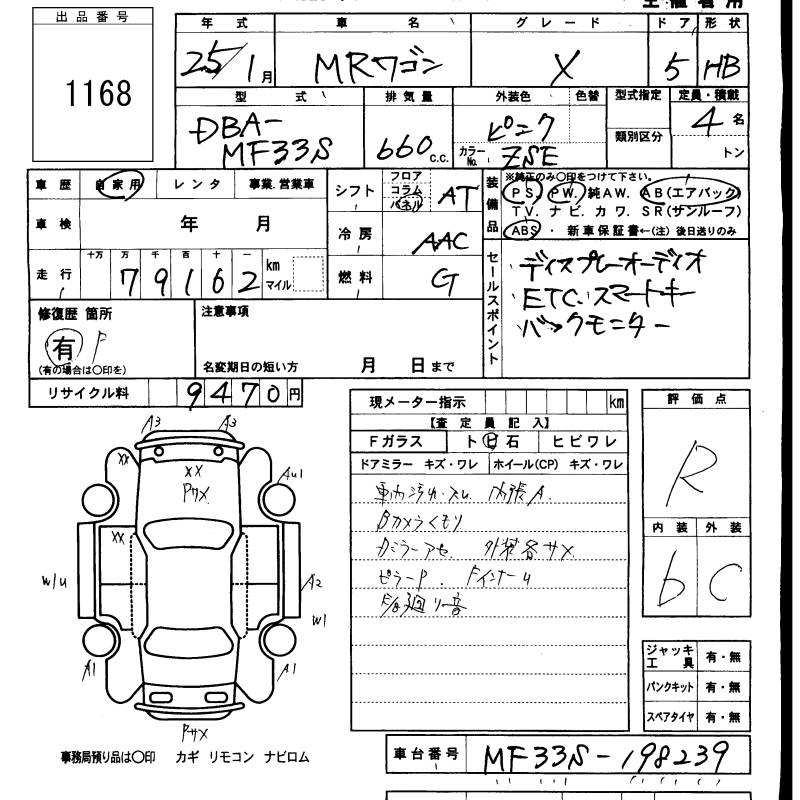 出品番号
1168
年式 車名 グレード ドア 形状
25/1月 MRワゴン X 5 HB
型式 排気量 外装色 色替 型式指定 定員・積載
DBA-MF33S 660c.c. ピンク 類別区分 4名
カラーNo. ZSE トン
車歴 自家用 レンタ 事業.営業車
シフト フロア コラム パネル AT
装備品 ※純正のみ○印をつけて下さい。
PS. PW. 純AW. AB(エアバック)
TV. ナビ. カワ. SR(サンルーフ)
ABS・新車保証書←(注)後日送りのみ
車検 年 月
冷房 AAC
走行 十万 万 千 百 十 一
79162 km マイル
燃料 G
セールスポイント
ディスプレーオーディオ
ETC.スマートキー
バックモニター
修復歴 箇所
有 F
(有の場合は○印を)
注意事項
名変期日の短い方 月 日まで
リサイクル料 9470円
現メーター指示 km
【査定員記入】
Fガラス ト ビ 石 ヒビワレ
ドアミラー キズ・ワレ ホイール(CP) キズ・ワレ
車内汚れ・スレ 内張A
Bカメラくもり
Dミラーアセ 外装各サメ
ピラーP. FインナーU
評価点
R
内装 外装
b C
ジャッキ 工具 有・無
パンクキット 有・無
スペアタイヤ 有・無
A3 A3
XX XX
Pサメ
AU1
XX
W/U A2
W1
A1 A1
Pサメ
事務局預り品は○印 カギ リモコン ナビロム
車台番号 MF33S-198239